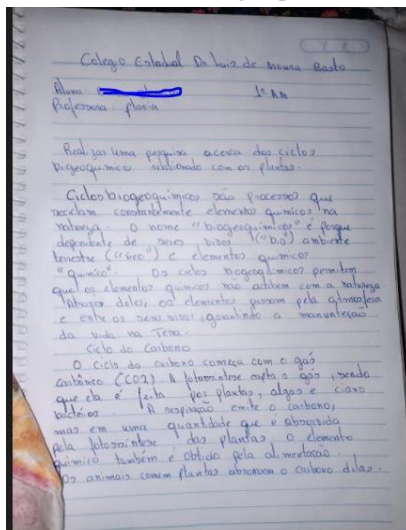 Colegio Estadual Dr Luiz de Moura Basto
Aluna 1º AM
Professora: flavia
Realizar uma pesquisa acerca dos ciclos
biogeoquimicos relacionado com as plantas.
Ciclos biogeoquimicos são processos que
reciclam constantemente elementos quimicos na
natureza. O nome "biogeoquimicos" é porque
dependente de seres vivos ("bio") ambiente
terrestre ("Geo") e elementos quimicos
"quimico". Os ciclos biogeoquimicos permitem
que os elementos quimicos não acabem com a natureza
Atraves deles, os elementos passam pela atmosfera
e entre os seres vivos, garantindo a manuntenção
da vida na Terra.
Ciclo do Carbono
O ciclo do carbono começa com o gás
carbônico (CO2). A fotossintese capta o gás, sendo
que ela é feita por plantas, algas e ciano
bactérias. A respiração emite o carbono,
mas em uma quantidade que é absorvida
pela fotossintese das plantas. O elemento
quimico também é obtido pela alimentação.
Os animais comem plantas absorvem o carbono delas.